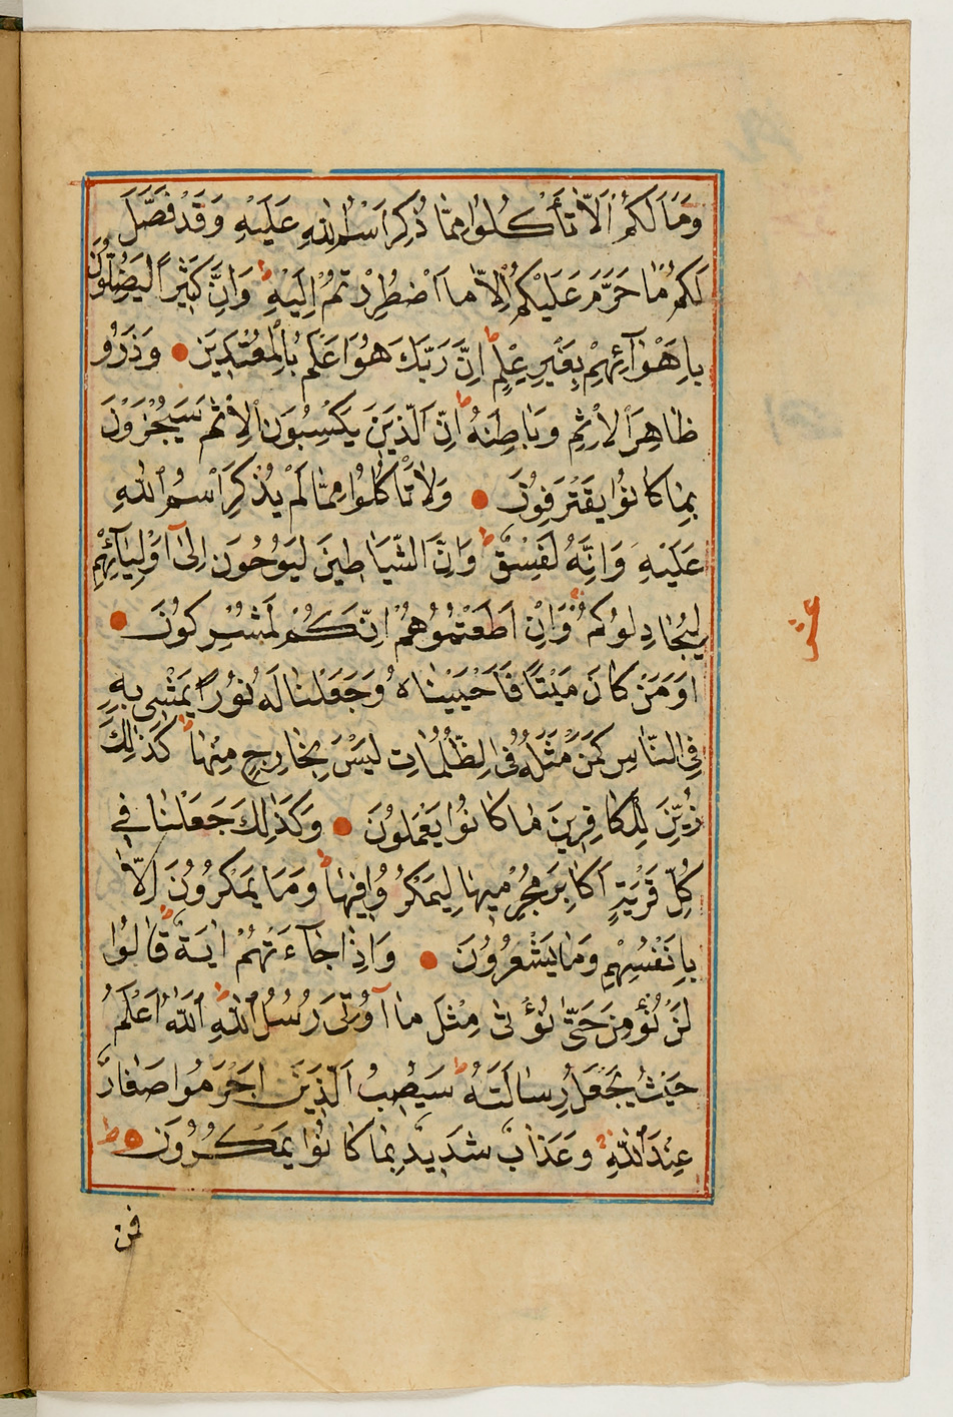 وَمَا لَكُمْ اَلَّا تَأْكُلُوا مِمَّا ذُكِرَ اسْمُ اللّٰهِ عَلَيْهِ وَقَدْ فَصَّلَ
لَكُمْ مَا حَرَّمَ عَلَيْكُمْ اِلَّا مَا اضْطُرِرْتُمْ اِلَيْهِ ط وَاِنَّ كَثِيرًا لَيُضِلُّونَ
بِاَهْوَآئِهِمْ بِغَيْرِ عِلْمٍ ط اِنَّ رَبَّكَ هُوَ اَعْلَمُ بِالْمُعْتَدِينَ ● وَذَرُو
ظَاهِرَ الْاِثْمِ وَبَاطِنَهُ ط اِنَّ الَّذِينَ يَكْسِبُونَ الْاِثْمَ سَيُجْزَوْنَ
بِمَا كَانُوا يَقْتَرِفُونَ ● وَلَا تَأْكُلُوا مِمَّا لَمْ يُذْكَرِ اسْمُ اللّٰهِ
عَلَيْهِ وَاِنَّهُ لَفِسْقٌ ط وَاِنَّ الشَّيَاطِينَ لَيُوحُونَ اِلٰٓى اَوْلِيَآئِهِمْ
لِيُجَادِلُوكُمْ وَاِنْ اَطَعْتُمُوهُمْ اِنَّكُمْ لَمُشْرِكُونَ ●
اَوَمَنْ كَانَ مَيْتًا فَاَحْيَيْنَاهُ وَجَعَلْنَا لَهُ نُورًا يَمْشِى بِهِ
فِى النَّاسِ كَمَنْ مَثَلُهُ فِى الظُّلُمَاتِ لَيْسَ بِخَارِجٍ مِنْهَا ط كَذٰلِكَ
زُيِّنَ لِلْكَافِرِينَ مَا كَانُوا يَعْمَلُونَ ● وَكَذٰلِكَ جَعَلْنَا فِى
كُلِّ قَرْيَةٍ اَكَابِرَ مُجْرِمِيهَا لِيَمْكُرُوا فِيهَا ط وَمَا يَمْكُرُونَ اِلَّا
بِاَنْفُسِهِمْ وَمَا يَشْعُرُونَ ● وَاِذَا جَآءَتْهُمْ اٰيَةٌ قَالُوا
لَنْ نُؤْمِنَ حَتّٰى نُؤْتٰى مِثْلَ مَآ اُوتِىَ رُسُلُ اللّٰهِ ط اَللّٰهُ اَعْلَمُ
حَيْثُ يَجْعَلُ رِسَالَتَهُ ط سَيُصِيبُ الَّذِينَ اَجْرَمُوا صَغَارٌ
عِنْدَ اللّٰهِ وَعَذَابٌ شَدِيدٌ بِمَا كَانُوا يَمْكُرُونَ ● ط
فمن
عشر